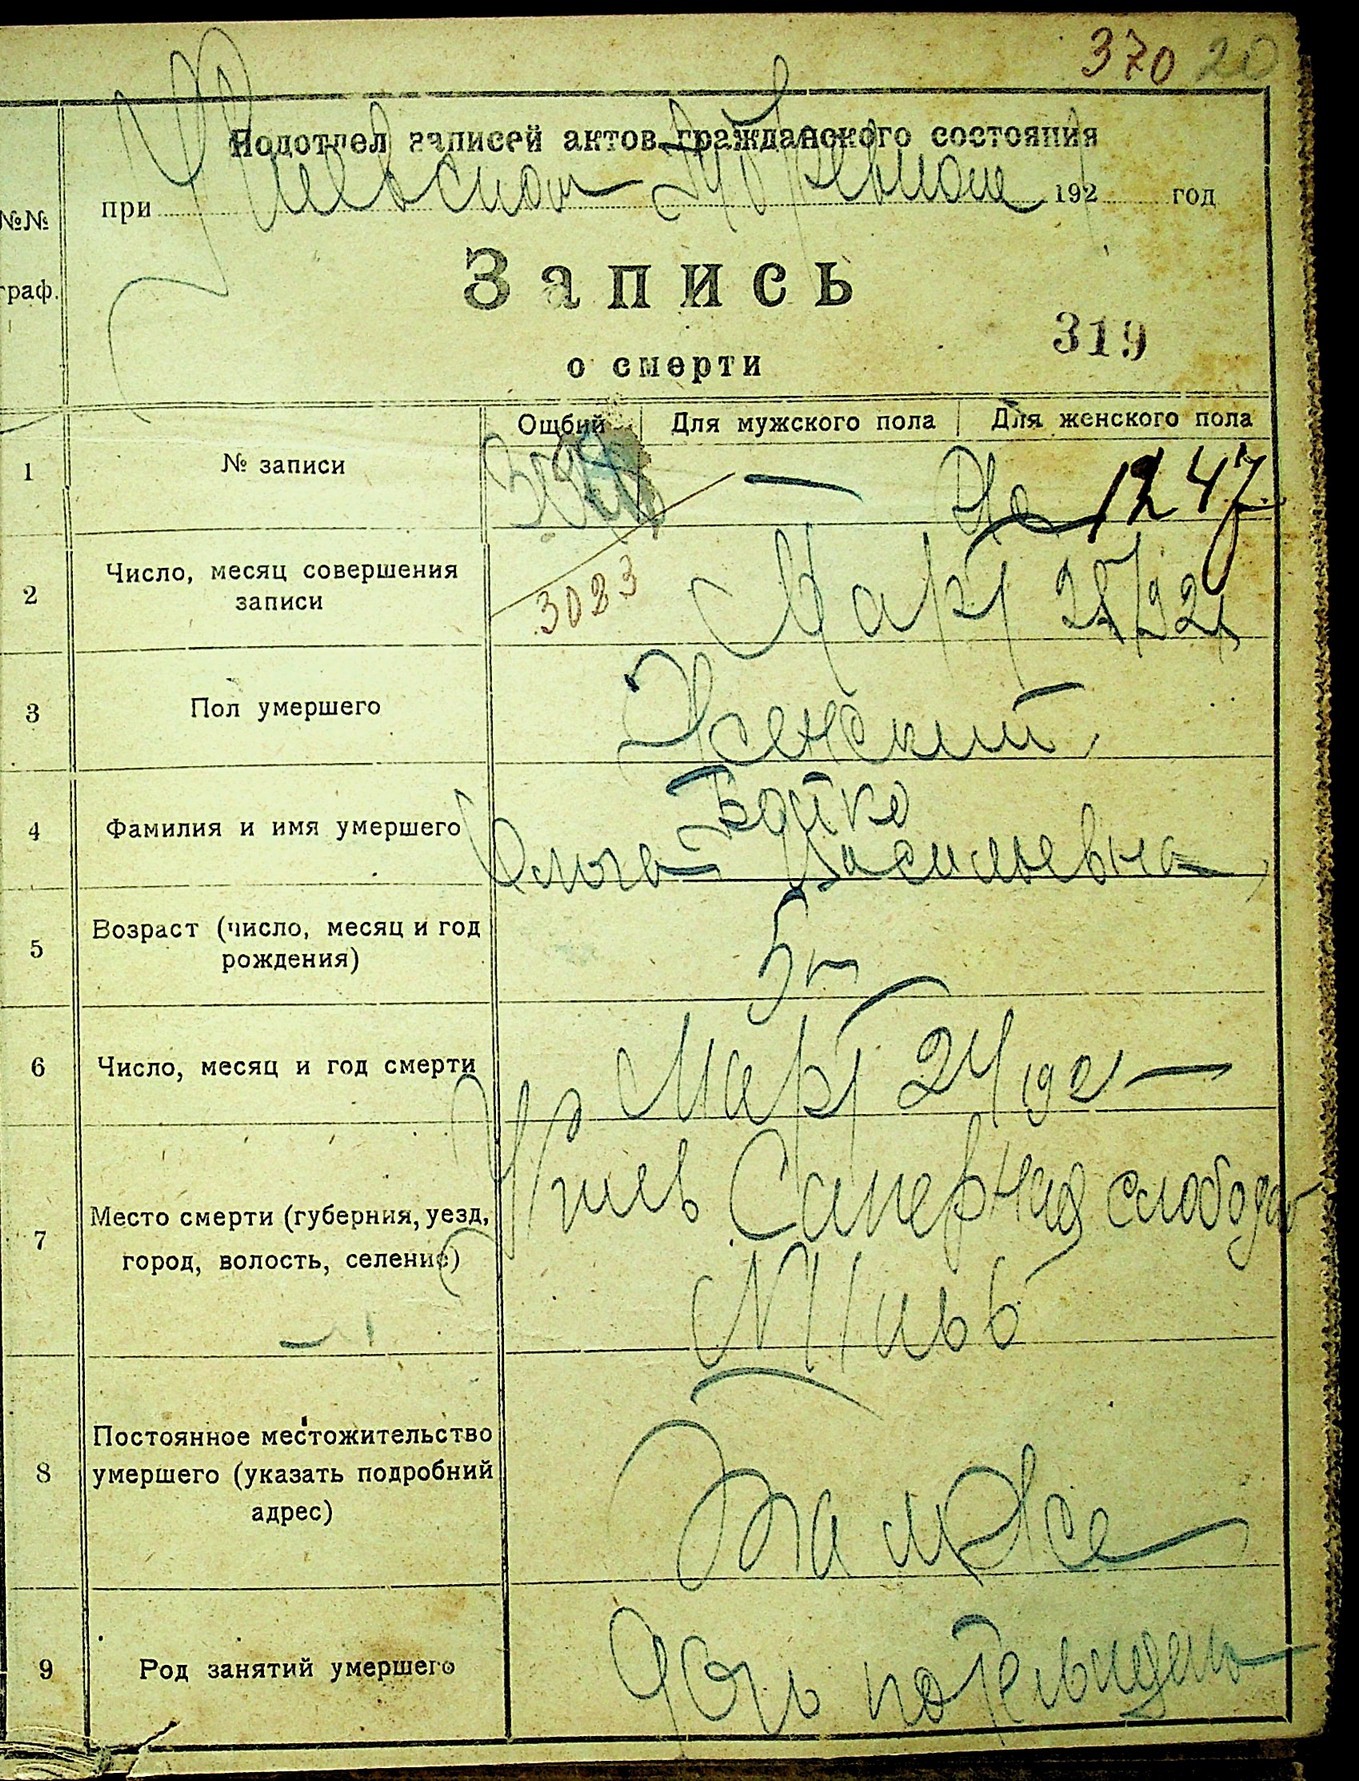 370 20
Подотдел записей актов гражданского состояния
при Киевском Губревкоме 1921 год
№№
граф.
Запись
319
о смерти
Ощбий Для мужского пола Для женского пола
1 № записи — 1247
3083
2 Число, месяц совершения
записи
Март
3 Пол умершего Женский
Бойко
4 Фамилия и имя умершего Ольга Васильевна
5 Возраст (число, месяц и год
рождения)
5
6 Число, месяц и год смерти Март 24 1921
7 Место смерти (губерния, уезд,
город, волость, селение)
Киев Саперная слобода
8 Постоянное местожительство
умершего (указать подробний
адрес)
Там же
9 Род занятий умершего Дочь